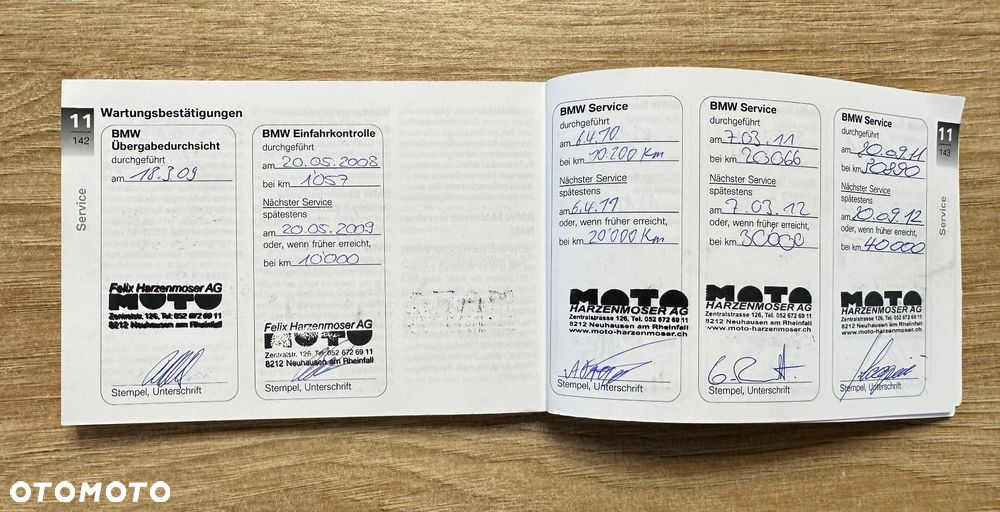 11
142
Service
Wartungsbestätigungen
BMW
Übergabedurchsicht
durchgeführt
am 18.3.09
Felix Harzenmoser AG
MOTO
Zentralstr. 126, Tel. 052 672 69 11
8212 Neuhausen am Rheinfall
Stempel, Unterschrift
BMW Einfahrkontrolle
durchgeführt
am 20.05.2008
bei km 1'057
Nächster Service
spätestens
am 20.05.2009
oder, wenn früher erreicht,
bei km 10'000
Felix Harzenmoser AG
MOTO
Zentralstr. 126, Tel. 052 672 69 11
8212 Neuhausen am Rheinfall
Stempel, Unterschrift
BMW Service
durchgeführt
am 6.4.10
bei km 10.200 Km
Nächster Service
spätestens
am 6.4.11
oder, wenn früher erreicht,
bei km 20'000 Km
MOTO
HARZENMOSER AG
Zentralstrasse 126, Tel. 052 672 69 11
8212 Neuhausen am Rheinfall
www.moto-harzenmoser.ch
Stempel, Unterschrift
BMW Service
durchgeführt
am 7.03.11
bei km 20066
Nächster Service
spätestens
am 7.03.12
oder, wenn früher erreicht,
bei km 30000
MOTO
HARZENMOSER AG
Zentralstrasse 126, Tel. 052 672 69 11
8212 Neuhausen am Rheinfall
www.moto-harzenmoser.ch
Stempel, Unterschrift
BMW Service
durchgeführt
am 20.09.11
bei km
Nächster Service
spätestens
am 20.09.12
oder, wenn früher erreicht,
bei km 40000
MOTO
HARZENMOSER AG
Zentralstrasse 126, Tel. 052 672 69 11
8212 Neuhausen am Rheinfall
www.moto-harzenmoser.ch
Stempel, Unterschrift
11
143
Service
OTOMOTO